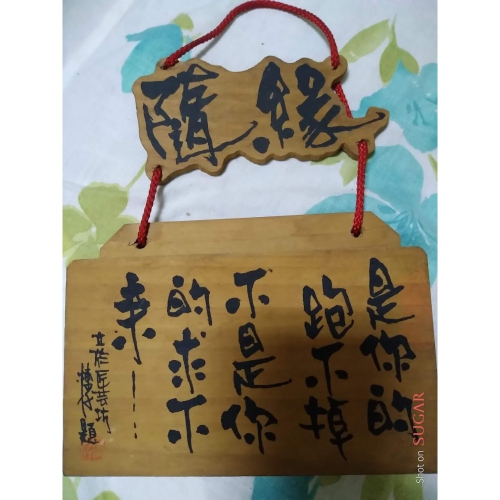 隨緣
是你的
跑不掉
不是你
的求不
來……
題
Shot on SUGAR